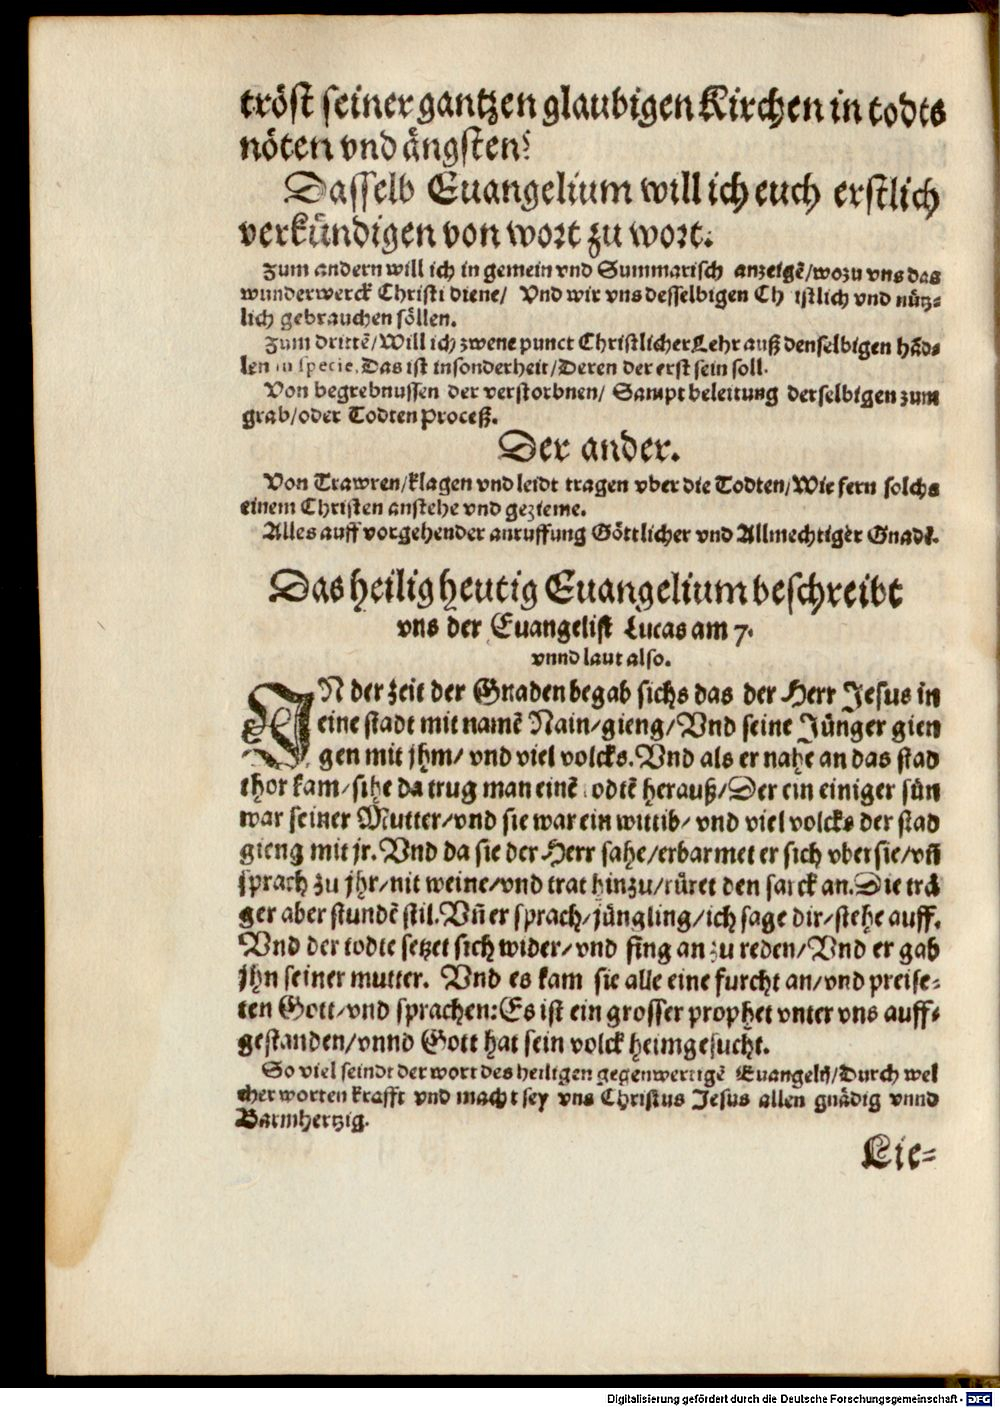 tröst seiner gantzen glaubigen Kirchen in todts
nöten vnd ängsten?
Dasselb Euangelium will ich euch erstlich
verkündigen von wort zu wort.
Zum andern will ich in gemein vnd Summarisch anzeigẽ/wozu vns das
wunderwerck Christi diene/ Vnd wir vns desselbigen Ch istlich vnd nütz-
lich gebrauchen söllen.
Zum drittẽ/Will ich zwene punct Christlicher Lehr auß denselbigen hãd-
len in specie. Das ist insonderheit/Deren der erst sein soll.
Von begrebnussen der verstorbnen/ Sampt beleitung derselbigen zum
grab/oder Todten Proceß.
Der ander.
Von Trawren/klagen vnd leidt tragen vber die Todten/Wie fern solchs
einem Christen anstehe vnd gezieme.
Alles auff vorgehender anruffung Göttlicher vnd Allmechtiger Gnadẽ.
Das heilig heutig Euangelium beschreibt
vns der Euangelist Lucas am 7.
vnnd laut also.
IN der zeit der Gnaden begab sichs das der Herr Jesus in
eine stadt mit namẽ Nain/gieng/Vnd seine Jünger gien
gen mit jhm/ vnd viel volcks. Vnd als er nahe an das stad
thor kam/sihe da trug man einẽ todtẽ herauß/Der ein einiger sün
war seiner Mutter/vnd sie war ein wittib/ vnd viel volcks der stad
gieng mit jr. Vnd da sie der Herr sahe/erbarmet er sich vber sie/vñ
sprach zu jhr/nit weine/vnd trat hinzu/rüret den sarck an. Die trä
ger aber stundẽ stil. Vñ er sprach/jüngling/ich sage dir/stehe auff.
Vnd der todte setzet sich wider/vnd fing an zu reden/Vnd er gab
jhn seiner mutter. Vnd es kam sie alle eine furcht an/vnd preise-
ten Gott/vnd sprachen: Es ist ein grosser prophet vnter vns auff-
gestanden/vnnd Gott hat sein volck heimgesucht.
So viel seindt der wort des heiligen gegenwertigẽ Euangelij/Durch wel
cher worten krafft vnd macht sey vns Christus Jesus allen gnädig vnnd
Barmhertzig.
Lie-
Digitalisierung gefördert durch die Deutsche Forschungsgemeinschaft - DFG